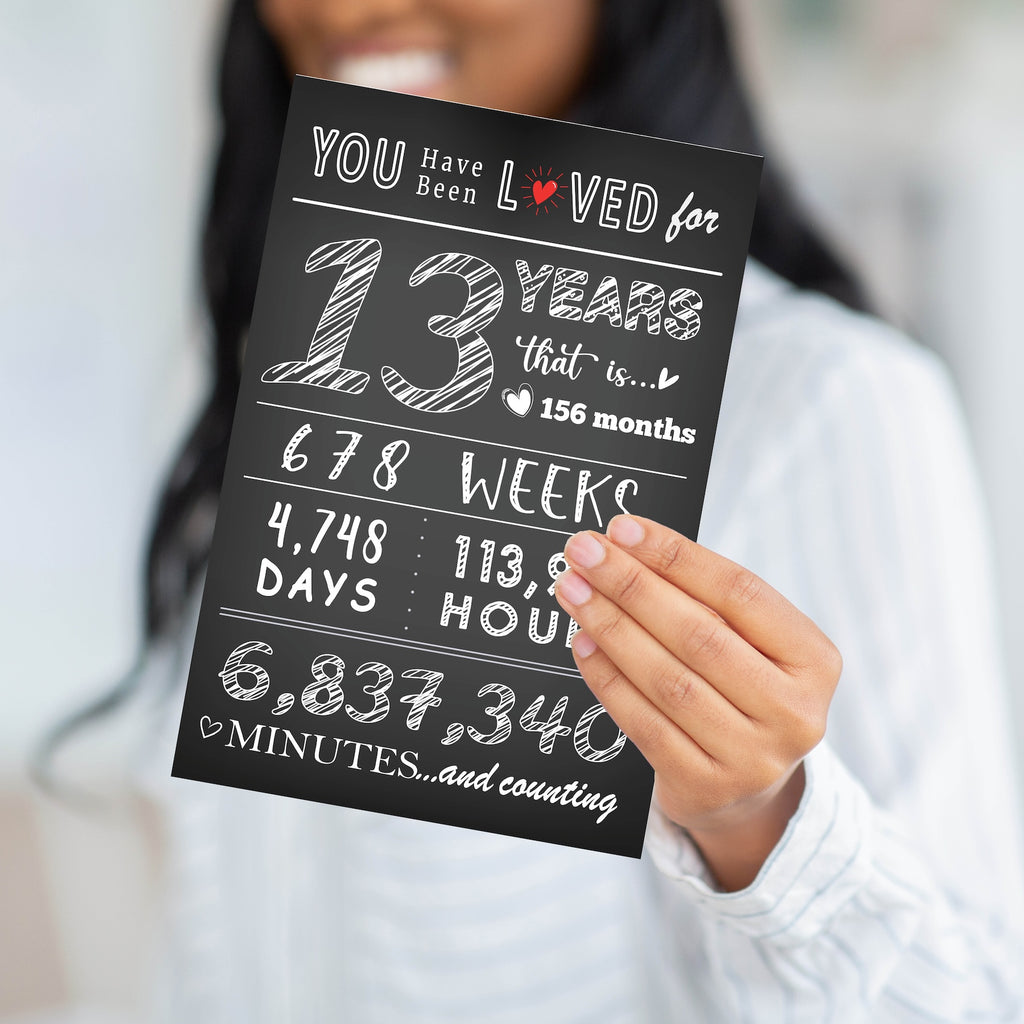 YOU Have Been LOVED for
13 YEARS
that is...
156 months
678 WEEKS
4,748 DAYS
HOURS
6,837,340
MINUTES...and counting